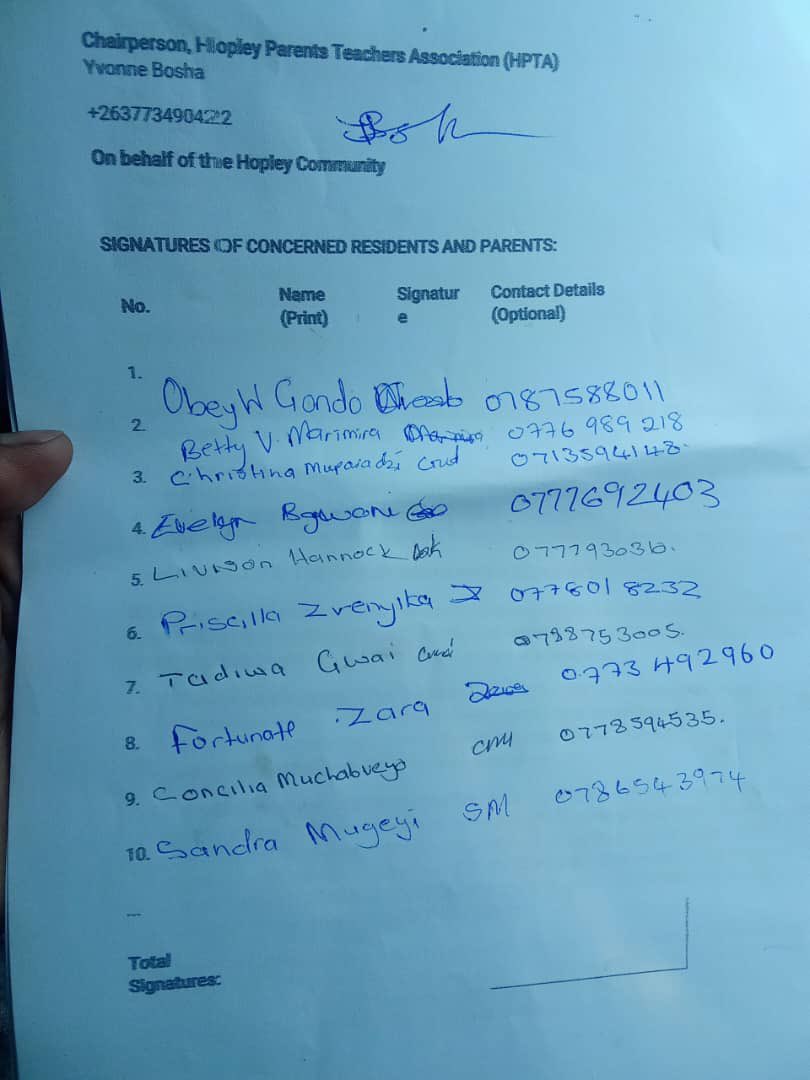 Chairperson, Hopley Parents Teachers Association (HPTA)
Yvonne Bosha
+263773490422
On behalf of the Hopley Community
SIGNATURES OF CONCERNED RESIDENTS AND PARENTS:
No. Name (Print) Signature Contact Details (Optional)
1. Obey W Gondo 0787588011
2. Betty V. Marimira 0776 989 218
3. Christina Muparadzi 0713594148
4. Evelyn Bgwoni 0777692403
5. Livison Hannock 077793036.
6. Priscilla Zvenyika 0778018232
7. Tadiwa Gwai 0788753005.
8. Fortunate Zara 0773 492960
9. Concilia Muchabveyo CM 0778594535.
10. Sandra Mugeyi SM 0786543974
...
Total
Signatures: